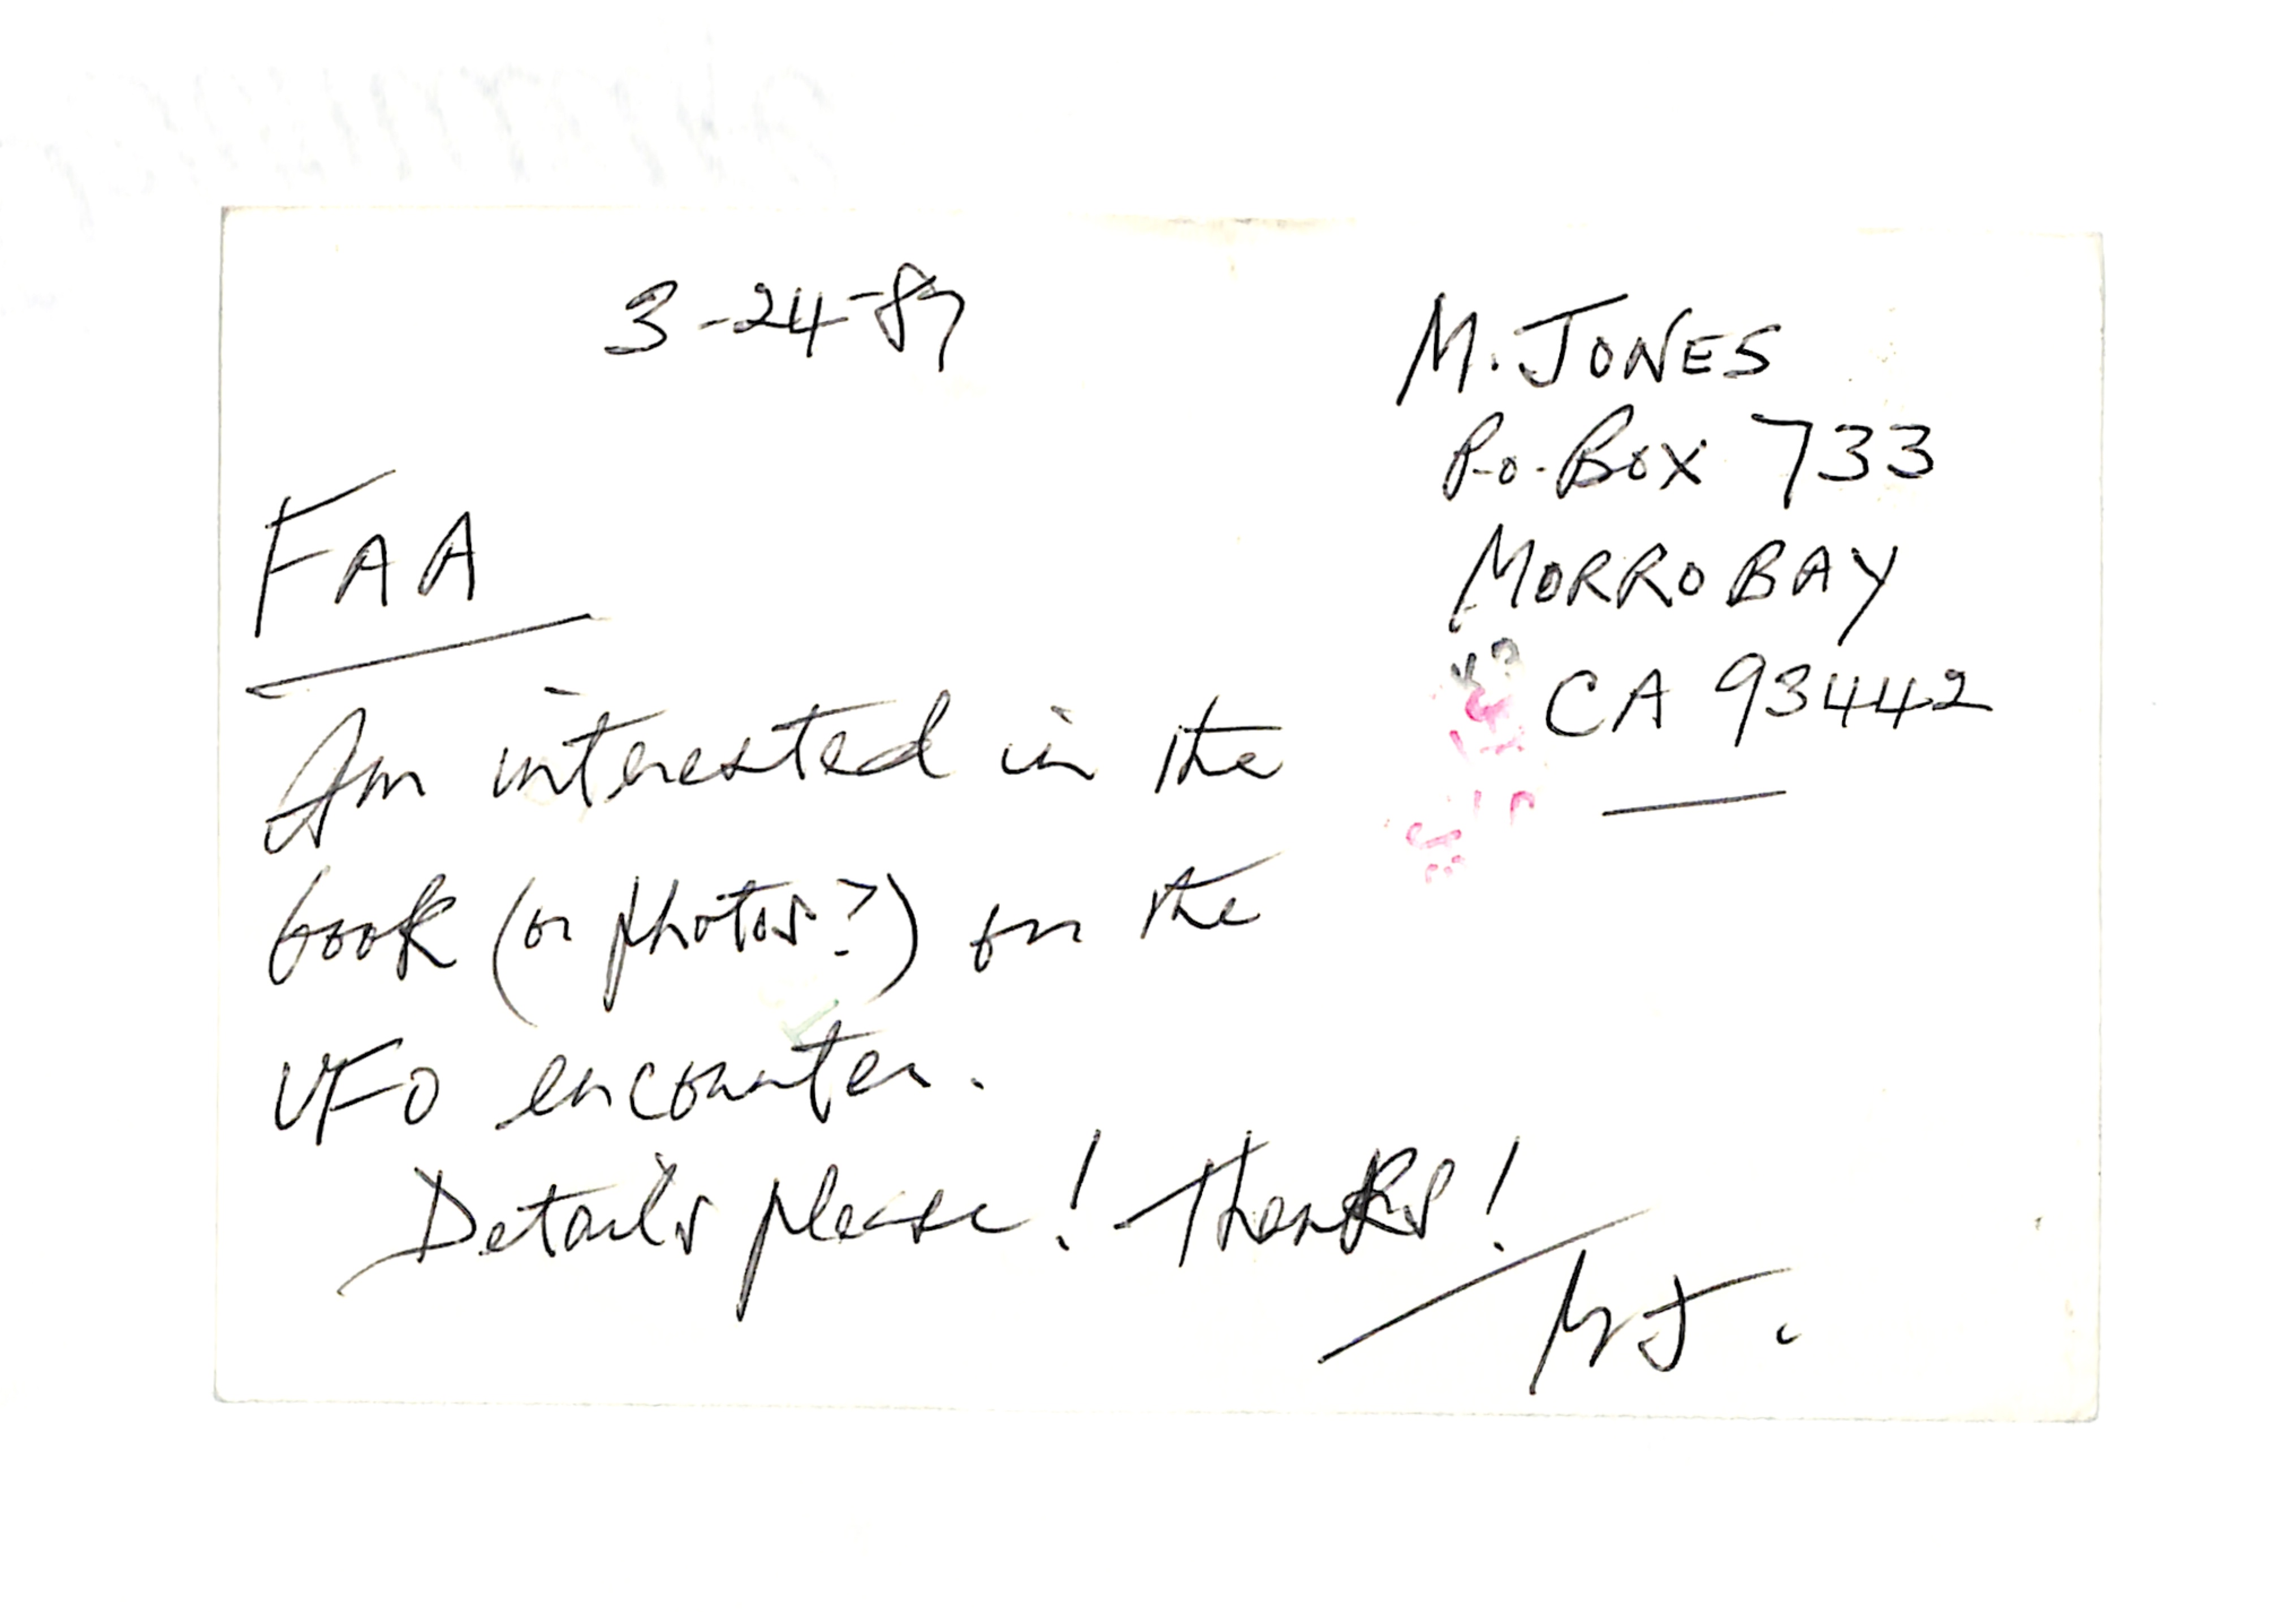 3-24-87
M. JONES
P.O. BOX 733
MORRO BAY
CA 93442
FAA
Am interested in the
book (or photos?) on the
UFO encounter.
Details please! Thanks!
MJ.